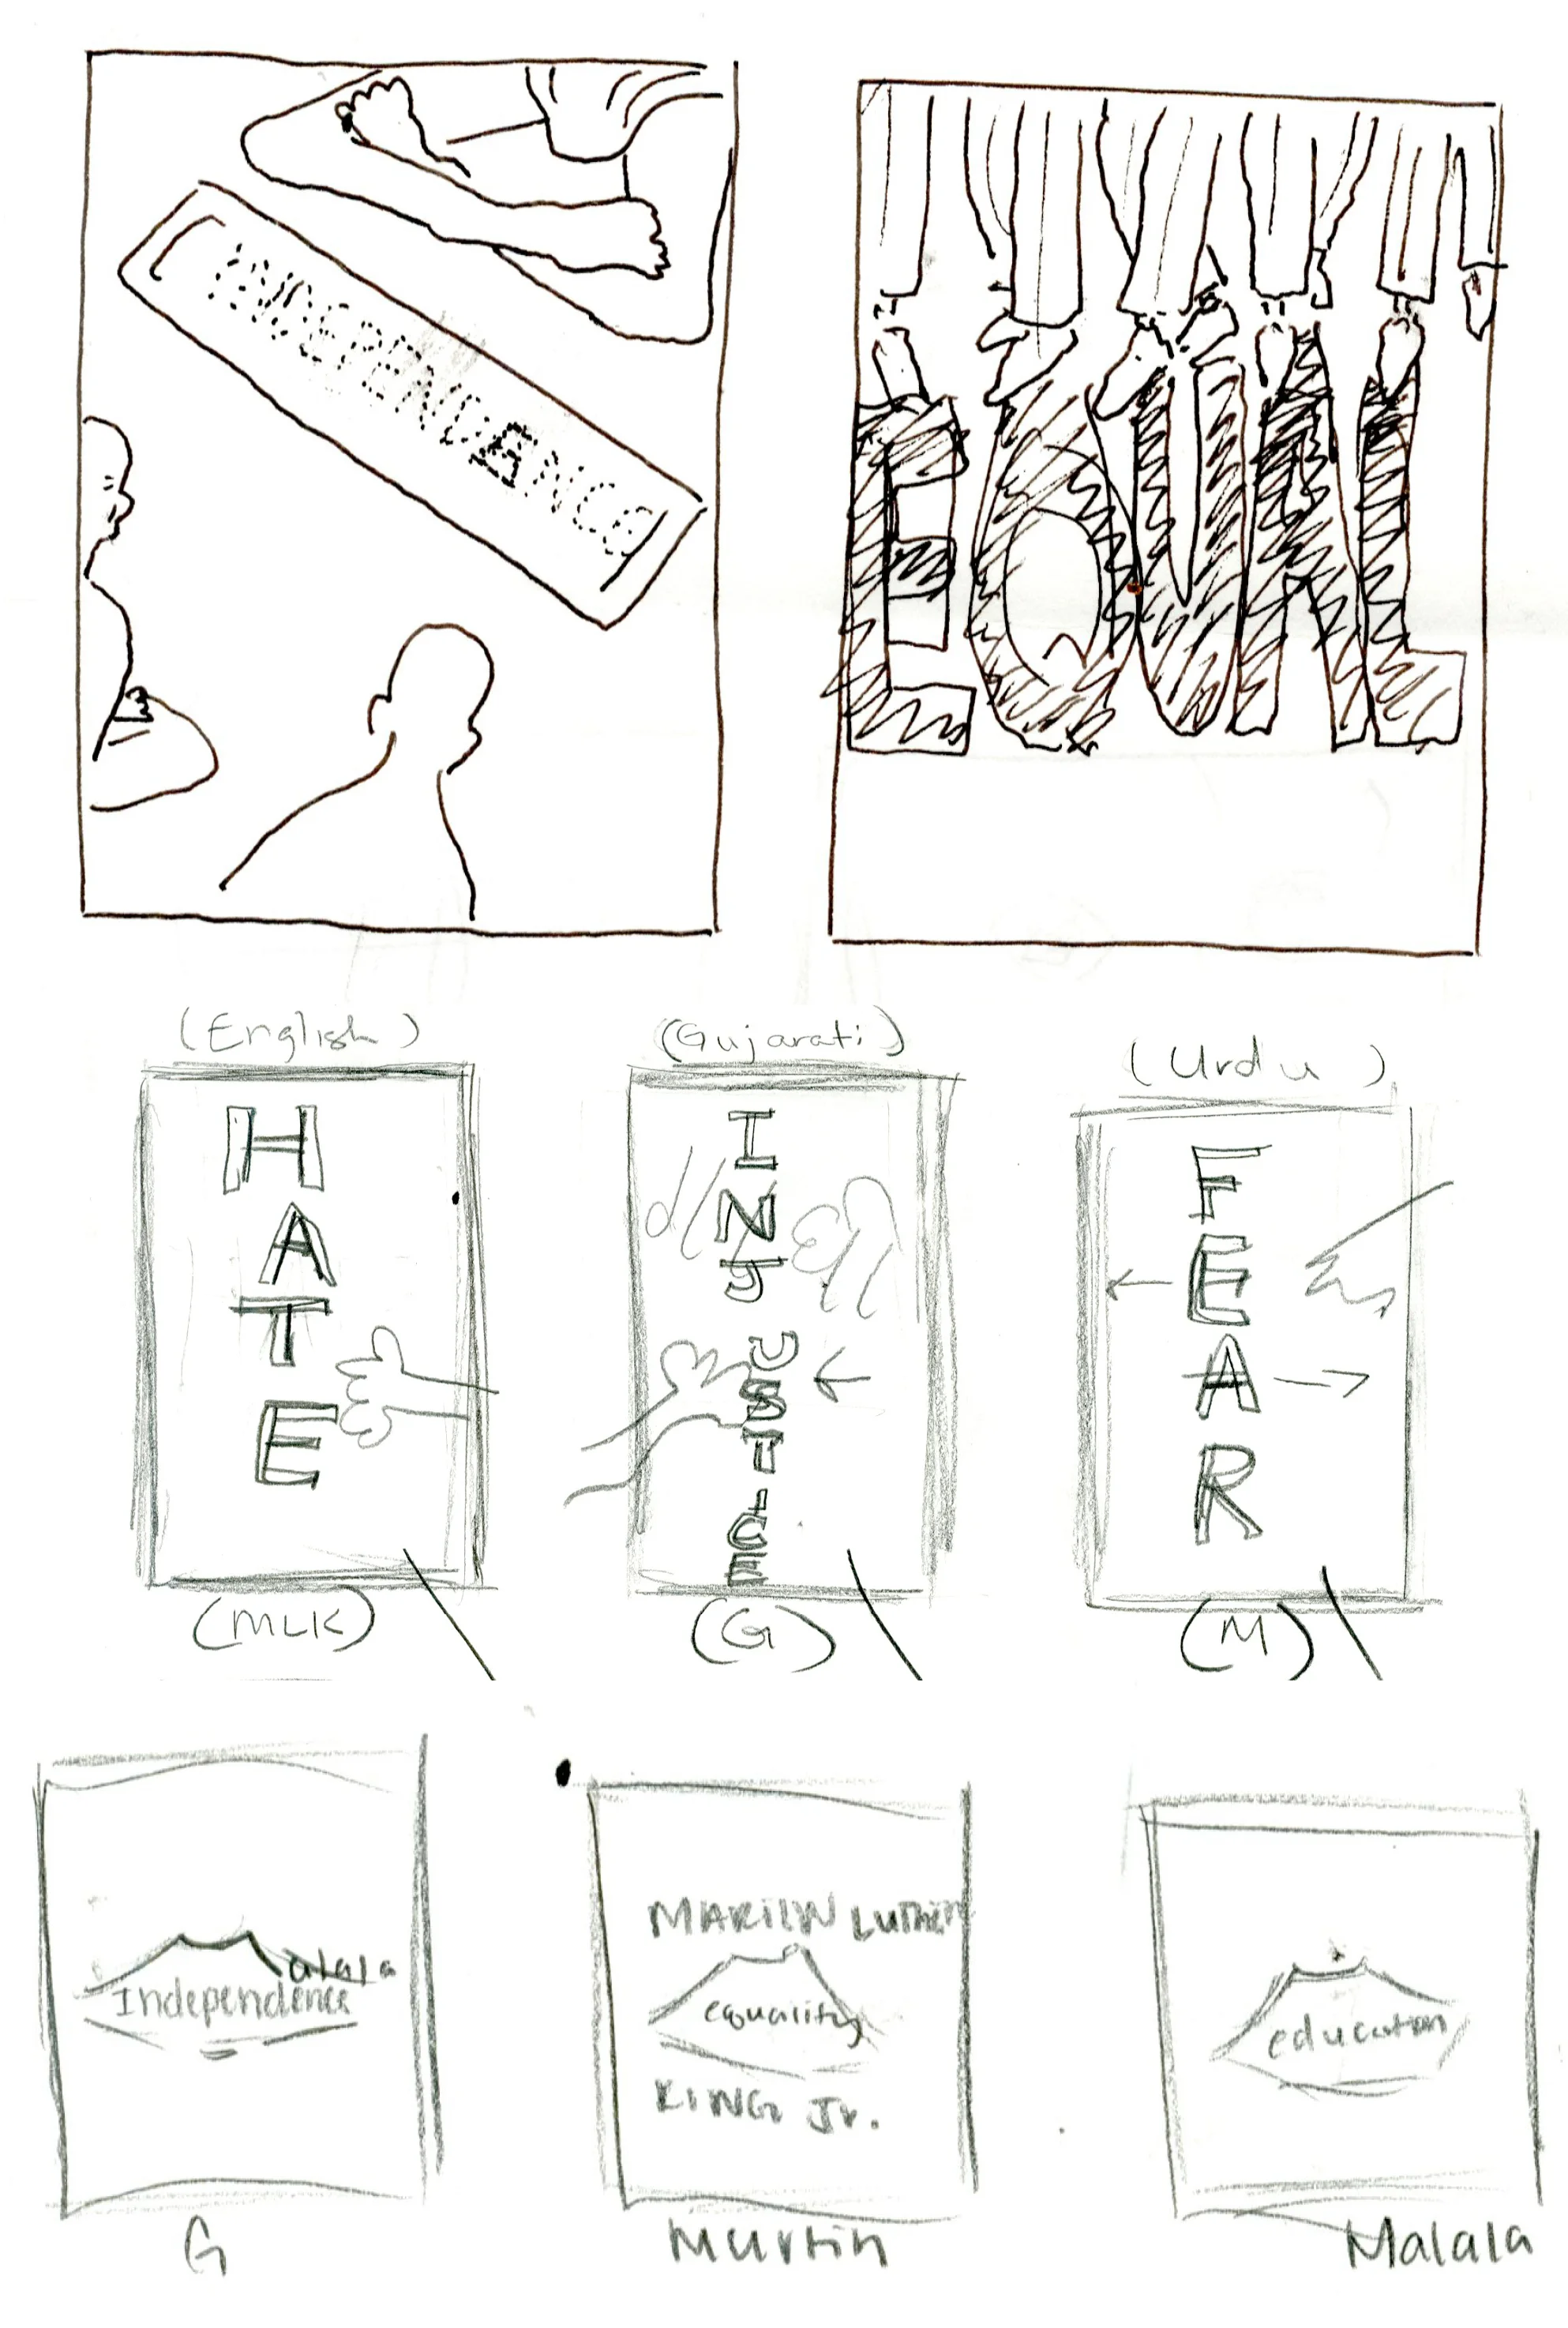 INDEPENDENCE
EQUAL
(English)
(Gujarati)
(Urdu)
HATE
INJUSTICE
FEAR
(MLK)
(G)
(M)
alala
Independence
MARTIN LUTHER
equality
KING Jr.
education
G
Martin
Malala